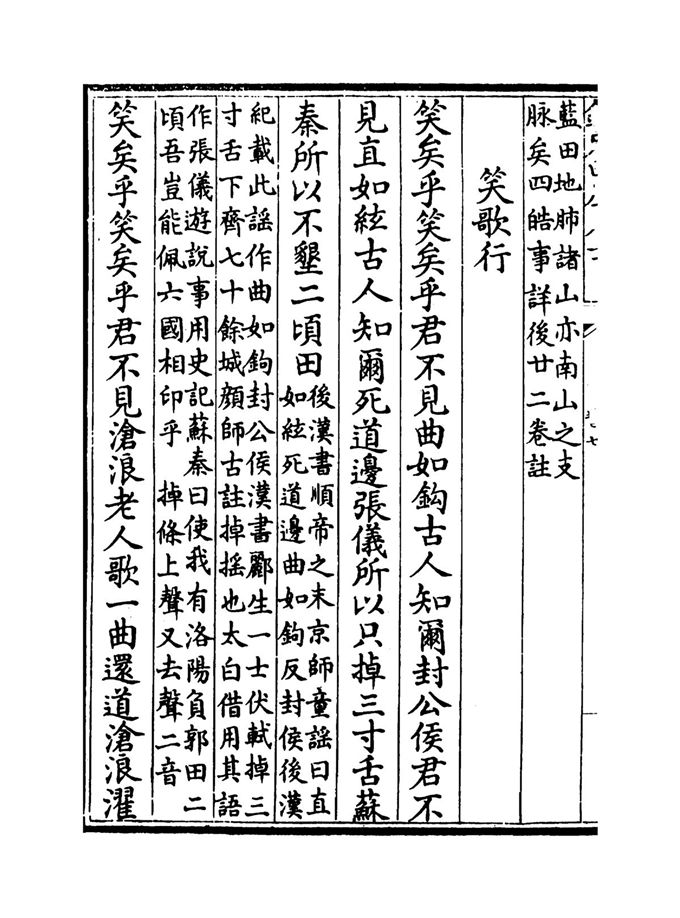 藍田地肺諸山亦南山之支
脉矣四皓事詳後廿二卷註
笑歌行
笑矣乎笑矣乎君不見曲如鈎古人知爾封公侯君不
見直如絃古人知爾死道邊張儀所以只掉三寸舌蘇
秦所以不墾二頃田後漢書順帝之末京師童謡曰直
如絃死道邊曲如鈎反封侯後漢
紀載此謡作曲如鈎封公侯漢書酈生一士伏軾掉三
寸舌下齊七十餘城顔師古註掉摇也太白借用其語
作張儀遊說事用史記蘇秦曰使我有洛陽負郭田二
頃吾豈能佩六國相印乎 掉條上聲又去聲二音
笑矣乎笑矣乎君不見滄浪老人歌一曲還道滄浪濯